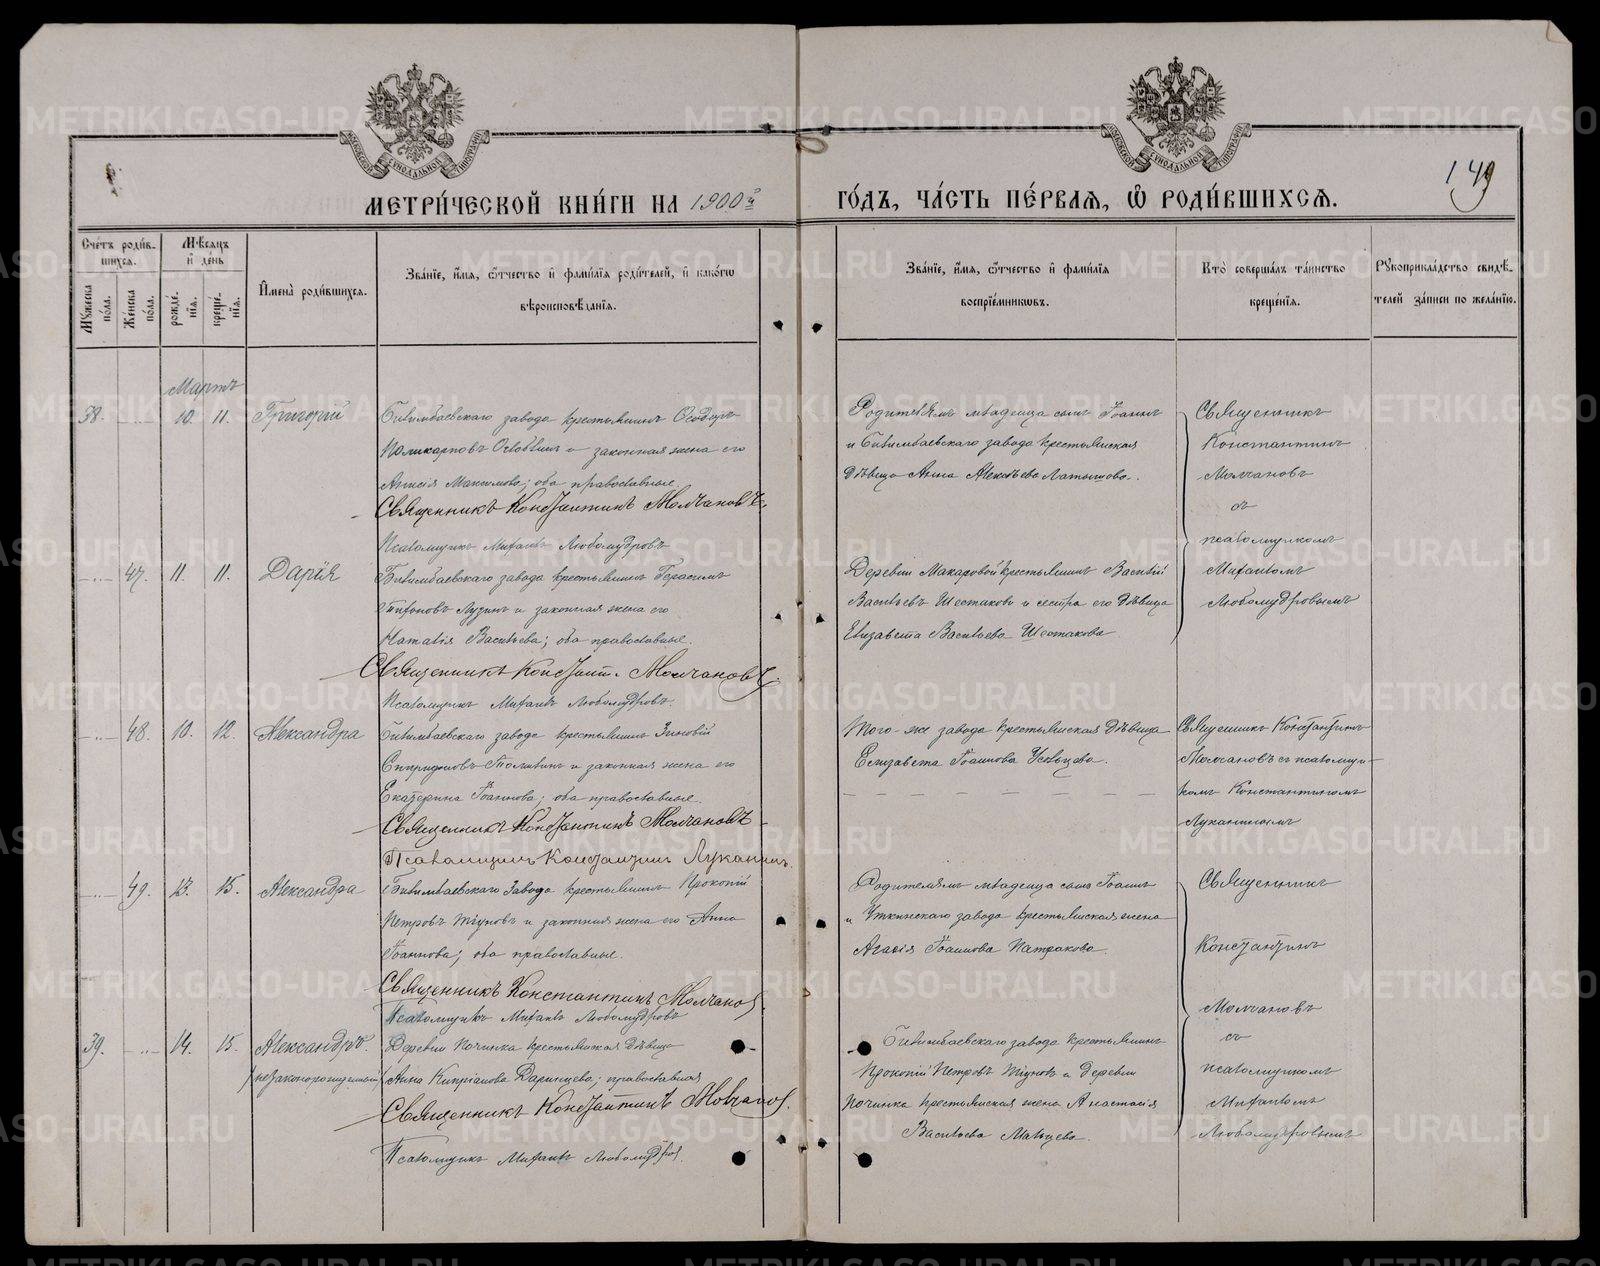 149
МЕТРИ́ЧЕСКОЙ КНИ́ГИ НА 1900й ГО́ДЪ, ЧА́СТЬ ПЕ́РВАЯ, Ѽ РОДИ́ВШИХСЯ.
Сче́тъ роди́вшихся.
Му́жеска по́ла.
Же́нска по́ла.
Мѣ́сяцъ и҆ де́нь
рожде́нїя.
креще́нїя.
И҆мена̀ роди́вшихся.
Зва́нїе, и҆́мя, ѻ҆́тчество и҆ фами́лїя роди́телей, и҆ како́гѡ
вѣроисповѣ́данїя.
Зва́нїе, и҆́мя, ѻ҆́тчество и҆ фами́лїя
воспрїе́мникѡвъ.
Кто̀ соверша́лъ та́инство
креще́нїя.
Рꙋкоприкла́дство свидѣ́телей
за́писи по жела́нїю.
Мартъ
38. 10. 11. Григорій
Билимбаевскаго завода крестьянинъ Ѳеодоръ
Поликарповъ и законная жена его
Анисія Максимова; оба православные.
Священникъ Константинъ Молчановъ
Псаломщикъ Мифаилъ Любомудровъ
Родителямъ младенца сынъ Іоаннъ
и Билимбаевскаго завода крестьянская
дѣвица Анна Алексѣева Латышова.
Священникъ
Константинъ
Молчановъ
съ
псаломщикомъ
Мифаиломъ
Любомудровымъ
47. 11. 11. Дарія
Билимбаевскаго завода крестьянинъ Герасимъ
Лузинъ и законная жена его
Наталія Васильева; оба православные.
Священникъ Констант. Молчановъ.
Псаломщикъ Мифаилъ Любомудровъ.
Деревни Макаровой крестьянинъ Василій
Васильевъ Шестаковъ и сестра его дѣвица
Елизавета Васильева Шестакова.
48. 10. 12. Александра
Билимбаевскаго завода крестьянинъ Зиновій
Спиридоновъ и законная жена его
Екатерина Іоаннова; оба православные.
Священникъ Константинъ Молчановъ
Псаломщикъ Константинъ Луканинъ.
Того-же завода крестьянская дѣвица
Елизавета Іоаннова
Священникъ Константинъ
Молчановъ съ псаломщи-
комъ Константиномъ
Луканинымъ
49. 13. 15. Александра
Билимбаевскаго завода крестьянинъ Прокопій
Петровъ и законная жена его Анна
Іоаннова; оба православные.
Священникъ Константинъ Молчановъ
Псаломщикъ Мифаилъ Любомудровъ
Родителямъ младенца сынъ Іоаннъ
и Уткинскаго завода крестьянская жена
Агасія Іоаннова Патракова.
Священникъ
Константинъ
Молчановъ
съ
псаломщикомъ
Мифаиломъ
Любомудровымъ
39. 14. 15. Александръ.
(незаконорожденный)
Деревни Починка крестьянская дѣвица
Анна Кипріанова Даринцева; православная
Священникъ Константинъ Молчановъ.
Псаломщикъ Мифаилъ Любомудров.
Билимбаевскаго завода крестьянинъ
Прокопій Петровъ и деревни
Починка крестьянская жена Анастасія
Васильева Мальцева.